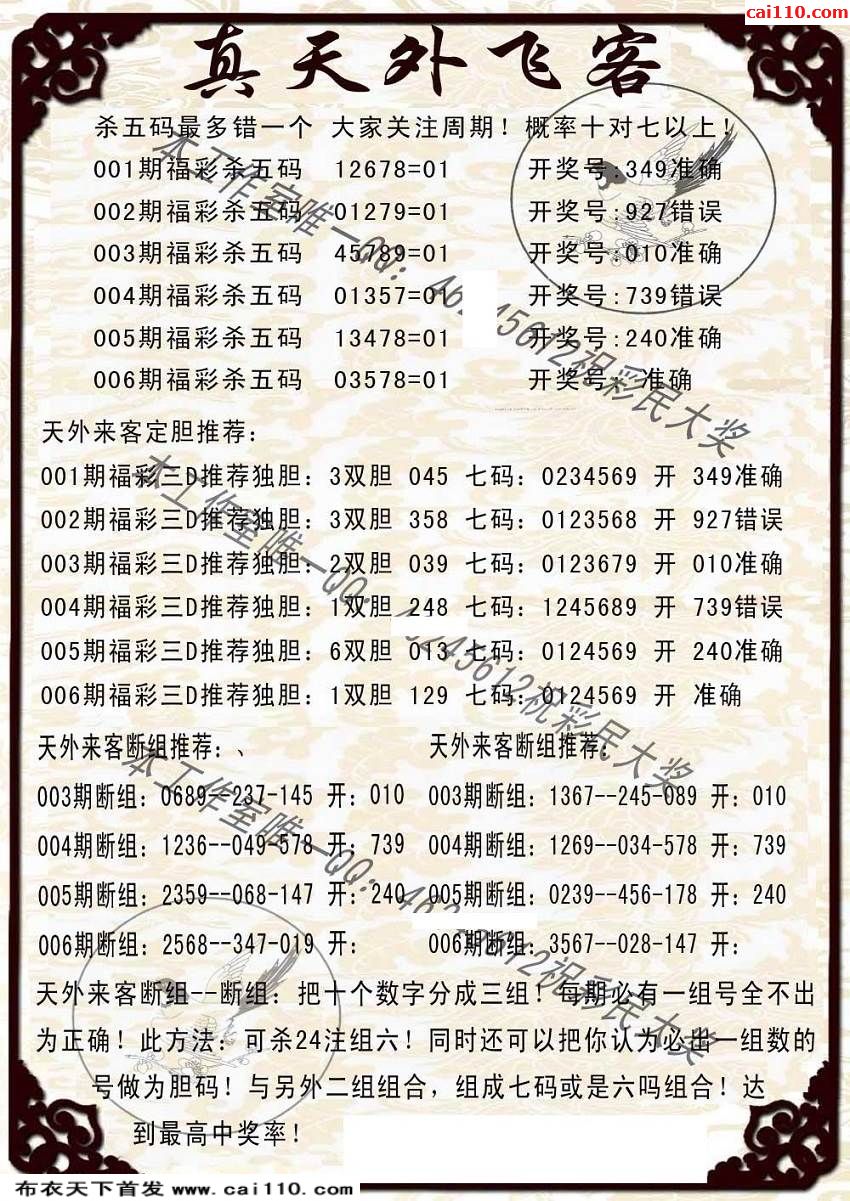 cai110.com
真天外飞客
杀五码最多错一个 大家关注周期！概率十对七以上！
001期福彩杀五码 12678=01 开奖号:349准确
002期福彩杀五码 01279=01 开奖号:927错误
003期福彩杀五码 45789=01 开奖号:010准确
004期福彩杀五码 01357=01 开奖号:739错误
005期福彩杀五码 13478=01 开奖号:240准确
006期福彩杀五码 03578=01 开奖号: 准确
天外来客定胆推荐：
001期福彩三D推荐独胆：3双胆 045 七码：0234569 开 349准确
002期福彩三D推荐独胆：3双胆 358 七码：0123568 开 927错误
003期福彩三D推荐独胆：2双胆 039 七码：0123679 开 010准确
004期福彩三D推荐独胆：1双胆 248 七码：1245689 开 739错误
005期福彩三D推荐独胆：6双胆 013 七码：0124569 开 240准确
006期福彩三D推荐独胆：1双胆 129 七码：0124569 开 准确
天外来客断组推荐：、 天外来客断组推荐：
003期断组：0689--237-145 开：010 003期断组：1367--245-089 开：010
004期断组：1236--049-578 开：739 004期断组：1269--034-578 开：739
005期断组：2359--068-147 开：240 005期断组：0239--456-178 开：240
006期断组：2568--347-019 开： 006期断组：3567--028-147 开：
天外来客断组--断组：把十个数字分成三组！每期必有一组号全不出
为正确！此方法：可杀24注组六！同时还可以把你认为必出一组数的
号做为胆码！与另外二组组合，组成七码或是六吗组合！达
到最高中奖率！
本工作室唯一QQ：46 45612祝彩民大奖
本工作室唯一QQ： 245612祝彩民大奖
本工作室唯一QQ：46 5612祝彩民大奖
布衣天下首发 www.cai110.com